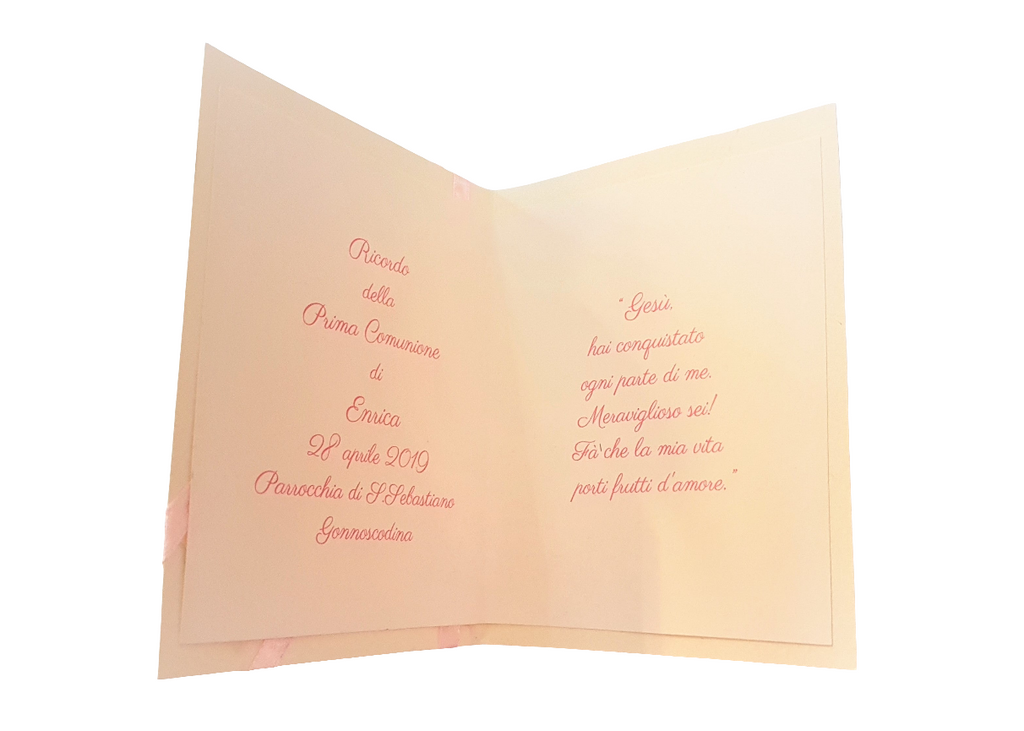 Ricordo
della
Prima Comunione
di
Enrica
28 aprile 2019
Parrocchia di S.Sebastiano
Gonnoscodina
“Gesù,
hai conquistato
ogni parte di me.
Meraviglioso sei!
Fà che la mia vita
porti frutti d'amore.”